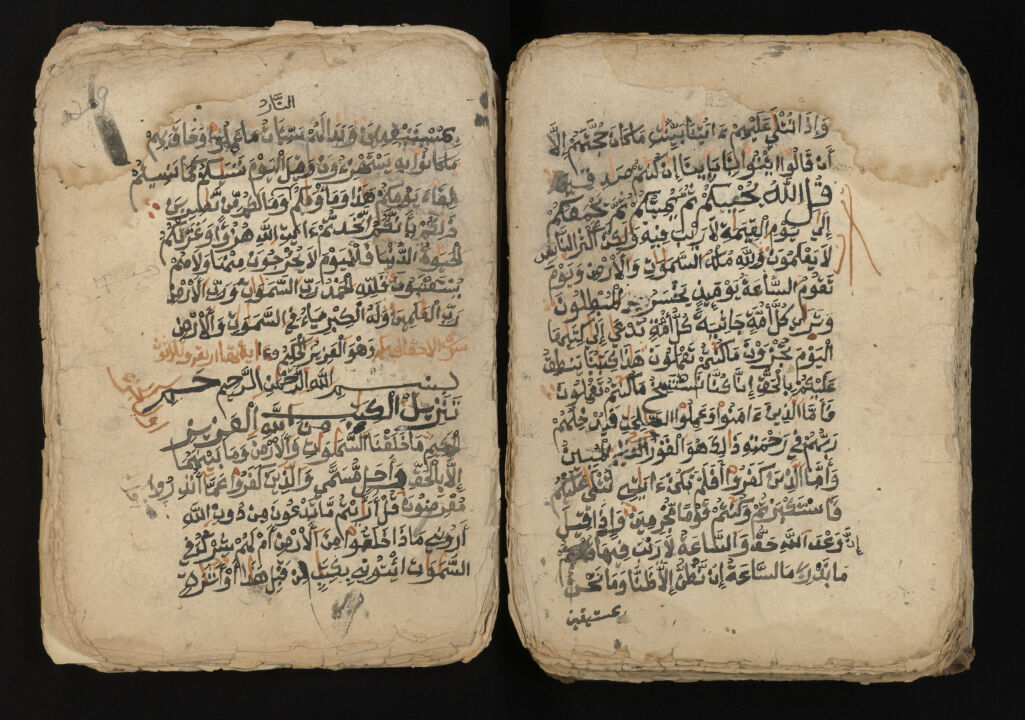 وَإِذَا تُتْلَىٰ عَلَيْهِمْ ءَايَٰتُنَا بَيِّنَٰتٍ مَّا كَانَ حُجَّتَهُمْ إِلَّا
أَن قَالُوا ايتُوا بِـَٔابَآئِنَا إِن كُنتُمْ صَٰدِقِينَ
قُلِ اللَّهُ يُحْيِيكُمْ ثُمَّ يُمِيتُكُمْ ثُمَّ يَجْمَعُكُمْ
إِلَىٰ يَوْمِ الْقِيَٰمَةِ لَا رَيْبَ فِيهِ وَلَٰكِنَّ أَكْثَرَ النَّاسِ
لَا يَعْلَمُونَ وَلِلَّهِ مُلْكُ السَّمَٰوَٰتِ وَالْأَرْضِ وَيَوْمَ
تَقُومُ السَّاعَةُ يَوْمَئِذٍ يَخْسَرُ الْمُبْطِلُونَ
وَتَرَىٰ كُلَّ أُمَّةٍ جَاثِيَةً كُلُّ أُمَّةٍ تُدْعَىٰ إِلَىٰ كِتَٰبِهَا
الْيَوْمَ تُجْزَوْنَ مَا كُنتُمْ تَعْمَلُونَ هَٰذَا كِتَٰبُنَا يَنطِقُ
عَلَيْكُم بِالْحَقِّ إِنَّا كُنَّا نَسْتَنسِخُ مَا كُنتُمْ تَعْمَلُونَ
فَأَمَّا الَّذِينَ ءَامَنُوا وَعَمِلُوا الصَّٰلِحَٰتِ فَيُدْخِلُهُمْ
رَبُّهُمْ فِي رَحْمَتِهِ ذَٰلِكَ هُوَ الْفَوْزُ الْمُبِينُ
وَأَمَّا الَّذِينَ كَفَرُوا أَفَلَمْ تَكُنْ ءَايَٰتِي تُتْلَىٰ عَلَيْكُمْ
فَاسْتَكْبَرْتُمْ وَكُنتُمْ قَوْمًا مُّجْرِمِينَ وَإِذَا قِيلَ
إِنَّ وَعْدَ اللَّهِ حَقٌّ وَالسَّاعَةُ لَا رَيْبَ فِيهَا قُلْتُم
مَا نَدْرِي مَا السَّاعَةُ إِن نَّظُنُّ إِلَّا ظَنًّا وَمَا نَحْنُ
بمستيقنين
النَّارُ
بِمُسْتَيْقِنِينَ وَبَدَا لَهُمْ سَيِّـَٔاتُ مَا عَمِلُوا وَحَاقَ بِهِم
مَّا كَانُوا بِهِ يَسْتَهْزِءُونَ وَقِيلَ الْيَوْمَ نَنسَىٰكُمْ كَمَا نَسِيتُمْ
لِقَآءَ يَوْمِكُمْ هَٰذَا وَمَأْوَىٰكُمُ وَمَا لَكُم مِّن نَّٰصِرِينَ
ذَٰلِكُم بِأَنَّكُمُ اتَّخَذْتُمْ ءَايَٰتِ اللَّهِ هُزُوًا وَغَرَّتْكُمُ
الْحَيَوٰةُ الدُّنْيَا فَالْيَوْمَ لَا يُخْرَجُونَ مِنْهَا وَلَا هُمْ
يُسْتَعْتَبُونَ فَلِلَّهِ الْحَمْدُ رَبِّ السَّمَٰوَٰتِ وَرَبِّ الْأَرْضِ
رَبِّ الْعَٰلَمِينَ وَلَهُ الْكِبْرِيَآءُ فِي السَّمَٰوَٰتِ وَالْأَرْضِ
سورة الاحقاف مكية وَهُوَ الْعَزِيزُ الْحَكِيمُ ءاياتها اربع وثلاثون
بِسْمِ اللَّهِ الرَّحْمَٰنِ الرَّحِيمِ حم
تَنزِيلُ الْكِتَٰبِ مِنَ اللَّهِ الْعَزِيزِ
الْحَكِيمِ مَا خَلَقْنَا السَّمَٰوَٰتِ وَالْأَرْضَ وَمَا بَيْنَهُمَا
إِلَّا بِالْحَقِّ وَأَجَلٍ مُّسَمًّى وَالَّذِينَ كَفَرُوا عَمَّا أُنذِرُوا
مُعْرِضُونَ قُلْ أَرَءَيْتُم مَّا تَدْعُونَ مِن دُونِ اللَّهِ
أَرُونِي مَاذَا خَلَقُوا مِنَ الْأَرْضِ أَمْ لَهُمْ شِرْكٌ فِي
السَّمَٰوَٰتِ ائْتُونِي بِكِتَٰبٍ مِّن قَبْلِ هَٰذَا أَوْ أَثَٰرَةٍ